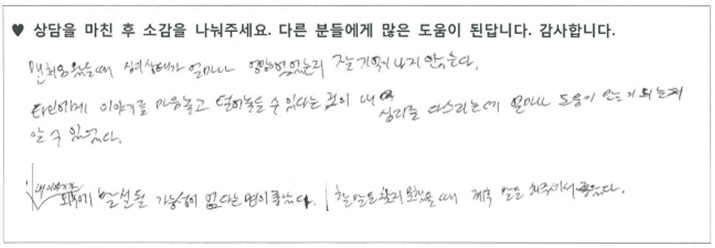 ♥ 상담을 마친 후 소감을 나눠주세요. 다른 분들에게 많은 도움이 된답니다. 감사합니다.
맨처음 왔을때 심리상태가 얼마나 엉망이었는지 잘 기억이 나지 않는다.
타인에게 이야기를 마음놓고 털어놓을 수 있다는 것이 내 심리를 다스리는데 얼마나 도움이 되는지
알 수 있었다.
내 이야기가 외부에 발설될 가능성이 없다는 면이 좋았다. 할 말을 찾지 못했을 때 계속 말을 해주셔서 좋았다.